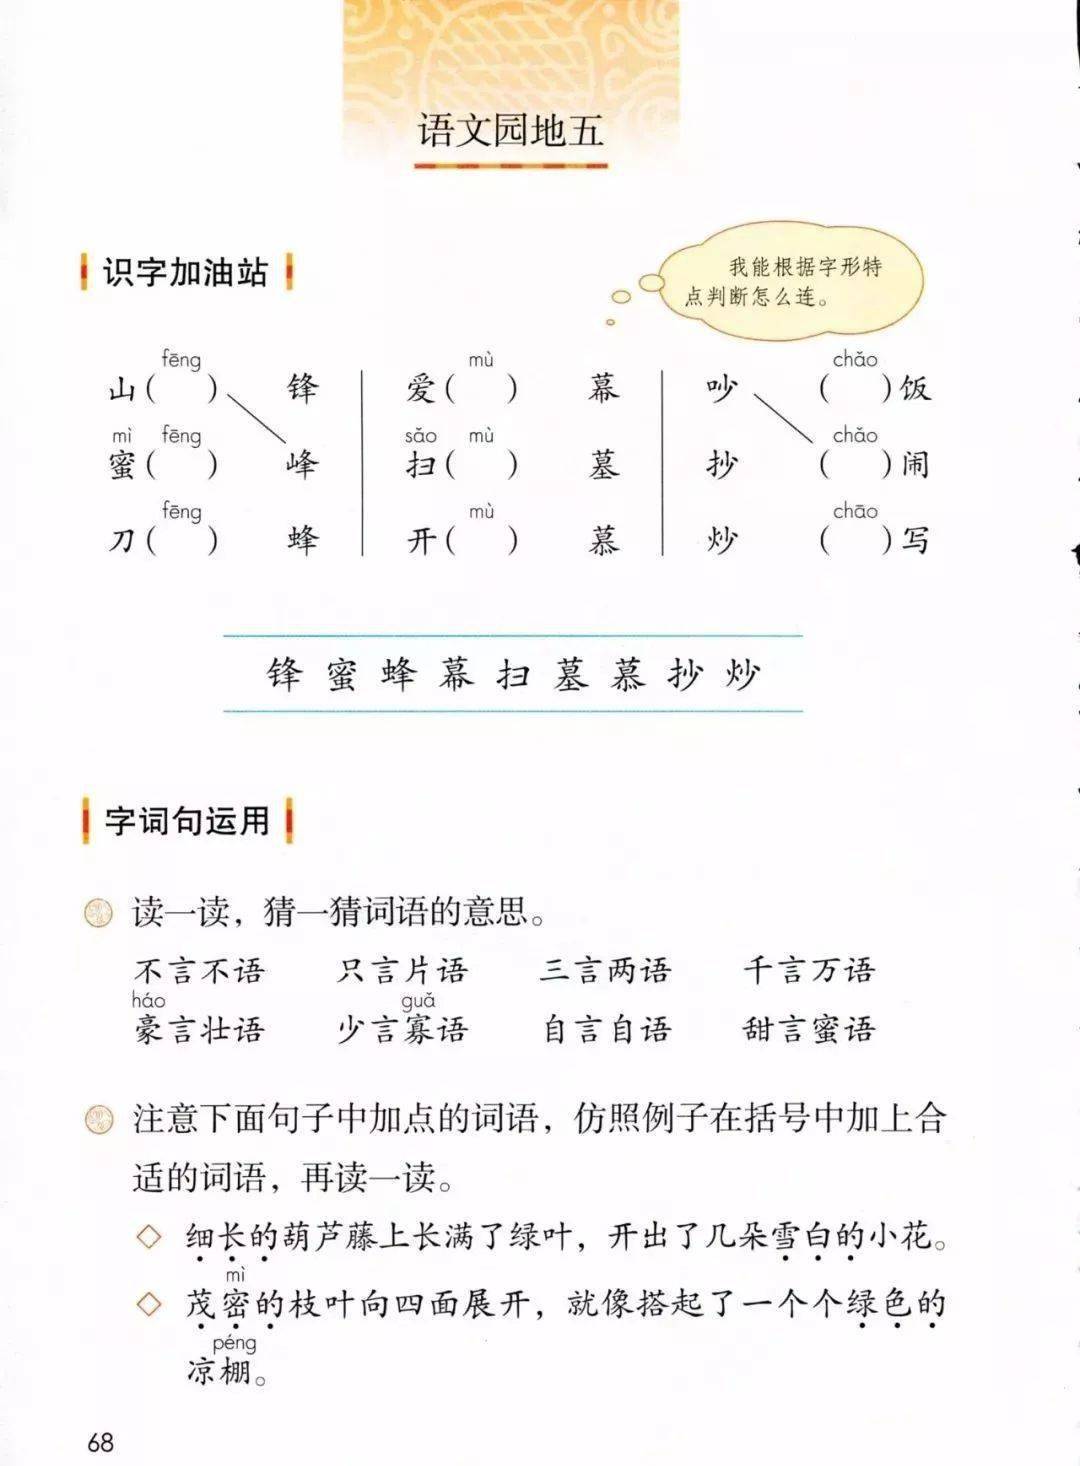 语文园地五
识字加油站
我能根据字形特
点判断怎么连。
fēng mù chǎo
山( ) 锋 爱( ) 幕 吵 ( )饭
mì fēng sǎo mù chǎo
蜜( ) 峰 扫( ) 墓 抄 ( )闹
fēng mù chāo
刀( ) 蜂 开( ) 慕 炒 ( )写
锋 蜜 蜂 幕 扫 墓 慕 抄 炒
字词句运用
读一读，猜一猜词语的意思。
不言不语 只言片语 三言两语 千言万语
háo guǎ
豪言壮语 少言寡语 自言自语 甜言蜜语
注意下面句子中加点的词语，仿照例子在括号中加上合
适的词语，再读一读。
◇ 细长的葫芦藤上长满了绿叶，开出了几朵雪白的小花。
mì
◇ 茂密的枝叶向四面展开，就像搭起了一个个绿色的
péng
凉棚。
68